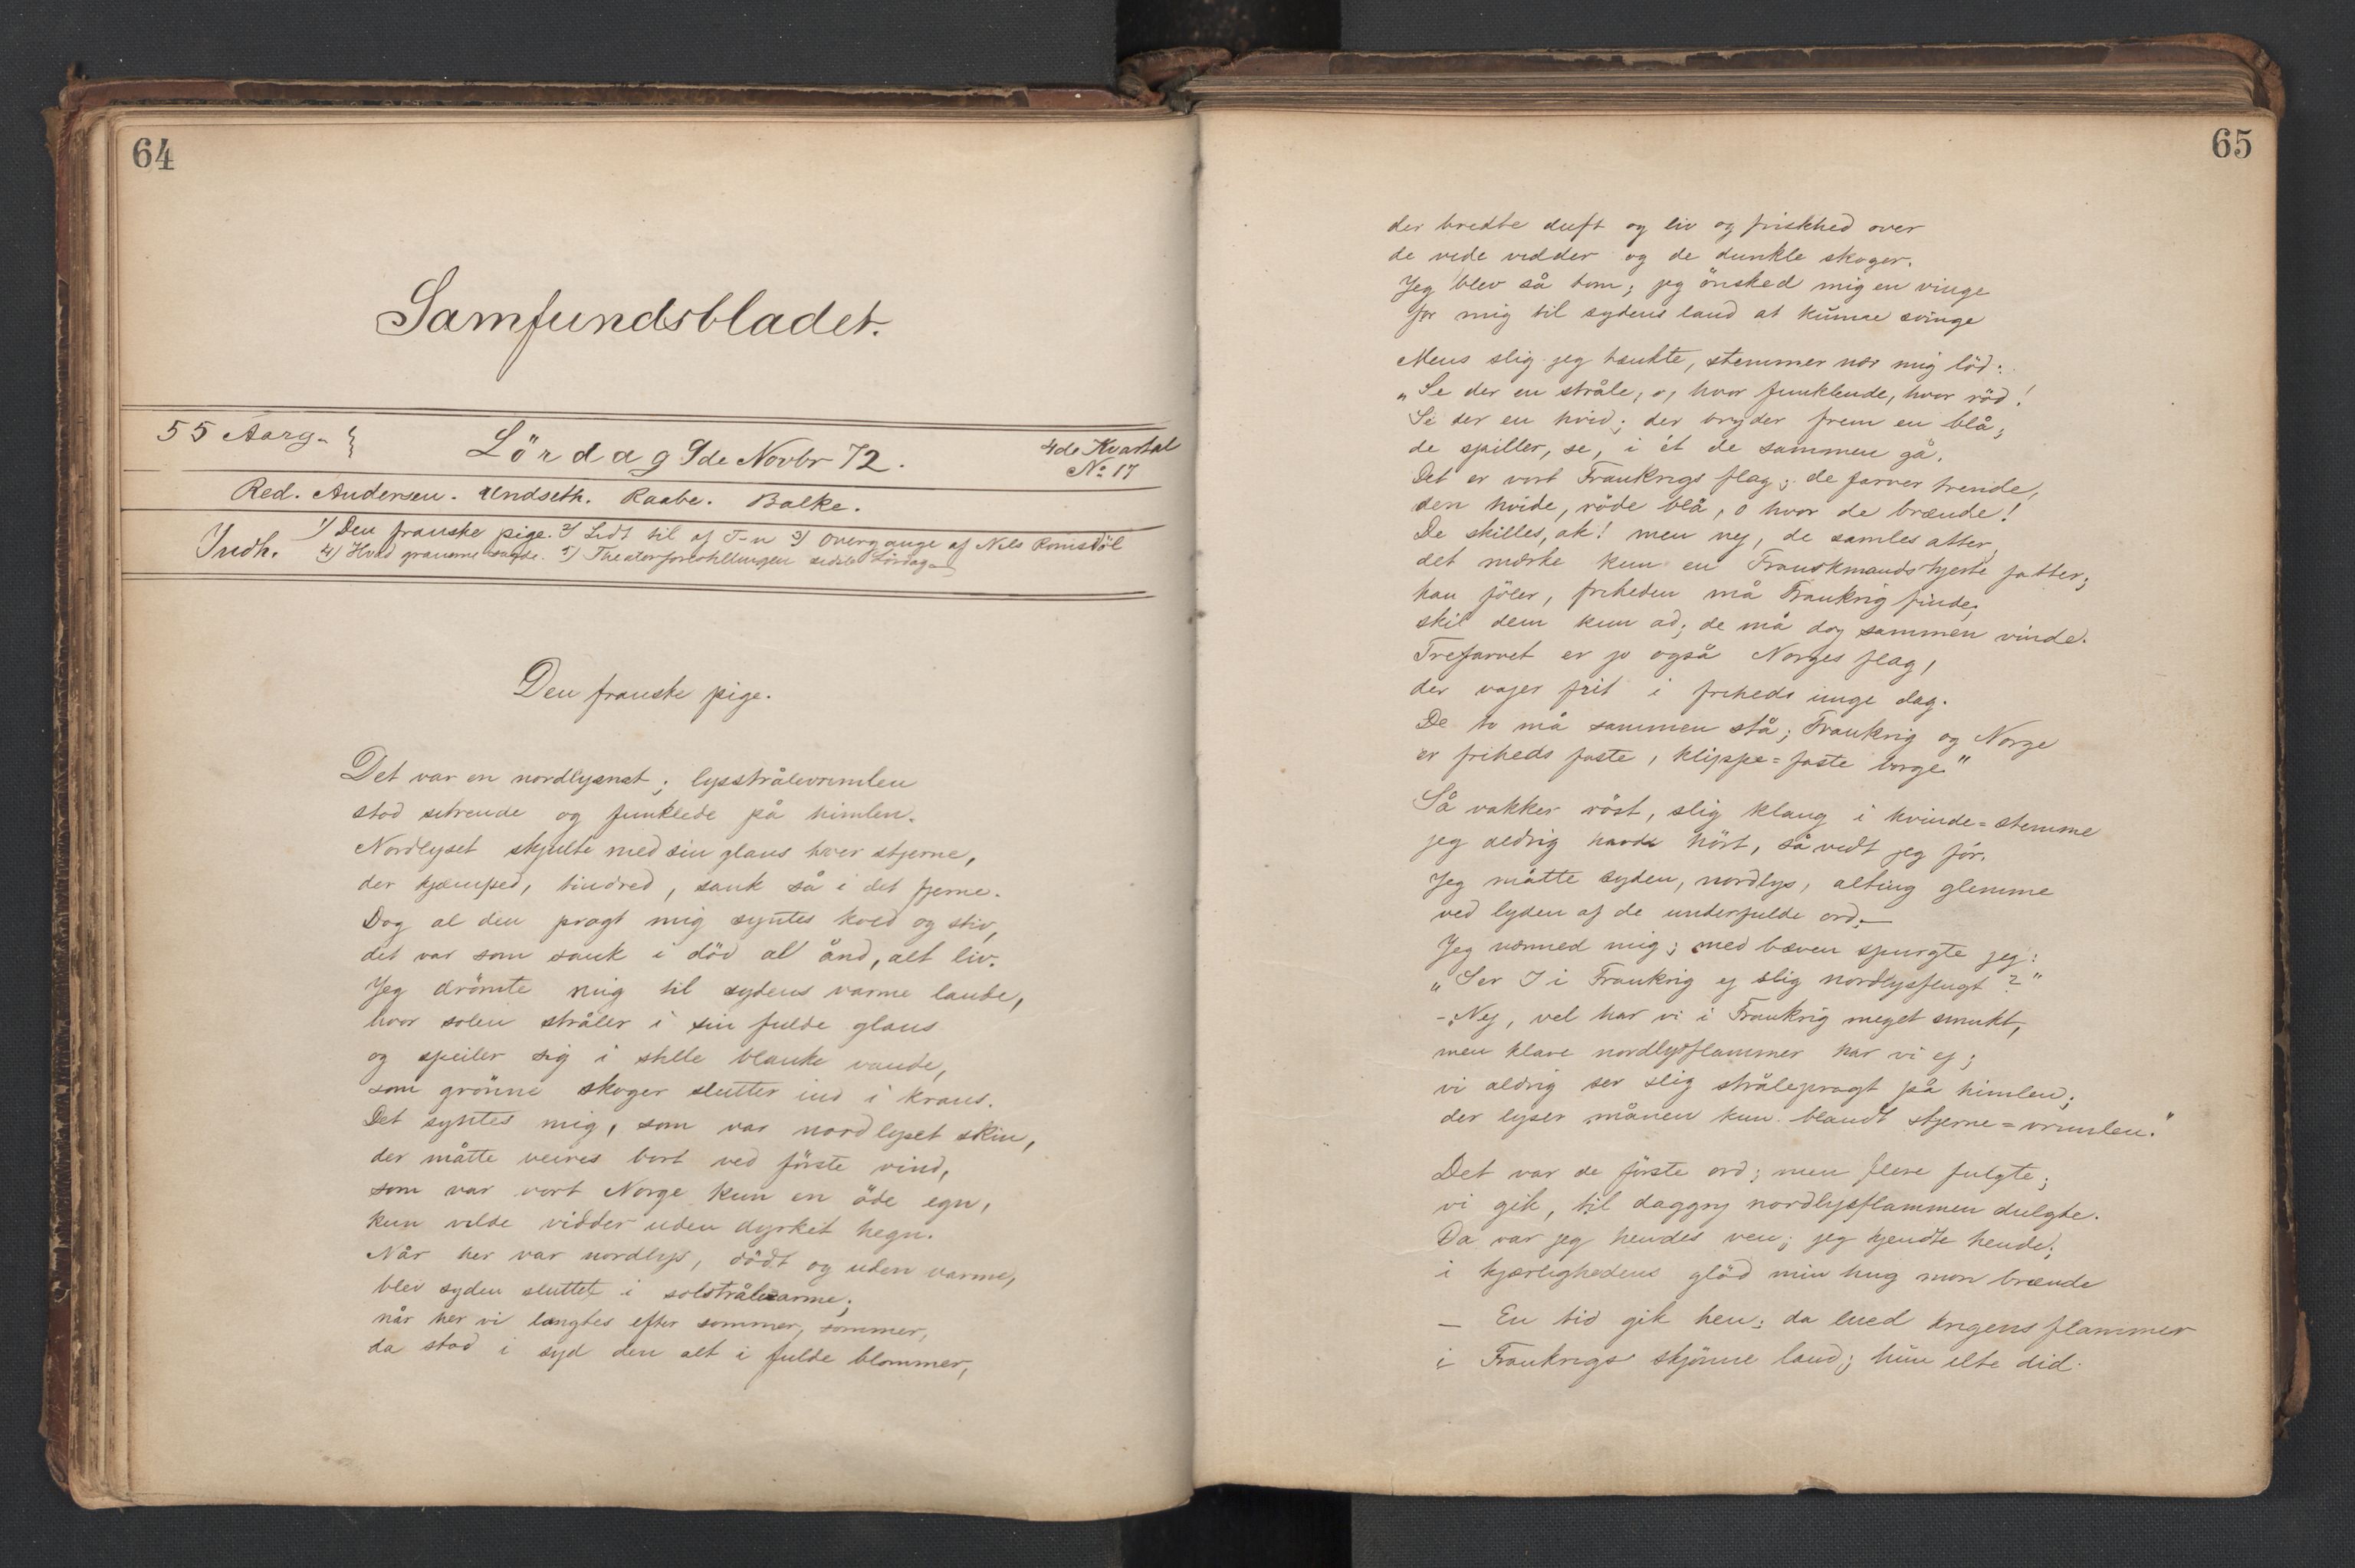 64
Samfundsbladet.
55 Aarg.
Lördag 9de Novbr 72.
4de Kvartal
No 17
Red. Andersen. Undseth. Raabe. Balke.
Indh.
1) Den franske pige. 2) Lidt til af T-n 3) Overgange af Nils Romsdöl
4) Hvad gransme sagde. 5) Theaterforestillingen sidste Lördag
Den franske pige.
Det var en nordlysnat; lysstrålevrimlen
stod sitrende og funklede på himlen.
Nordlyset skjulte med sin glans hver stjerne,
der kjæmped, tindred, sank så i det fjerne.
Dog al den pragt mig syntes kold og stiv,
det var som sank i död al ånd, alt liv.
Jeg drömte mig til sydens varme lande,
hvor solen stråler i sin fulde glans
og speiler sig i stille blanke vande,
som grönne skoger slutter ind i krans.
Det syntes mig, som var nordlyset skin,
der måtte veires bort ved förste vind,
som var vort Norge kun en öde egn,
kun vilde vidder uden dyrket hegn.
Når her var nordlys, dödt og uden varme,
blev syden sluttet i solstrålearme;
når her vi længtes efter sommer, sommer,
da stod i syd den alt i fulde blommer,
65
der bredte duft og liv og friskhed over
de vide vidder og de dunkle skoger.
Jeg blev så tom; jeg önsked mig en vinge
for mig til sydens land at kunne svinge
Mens slig jeg tænkte, stemmer nær mig löd:
„Se der en stråle, o, hvor funklende, hvor röd!
Se der en hvid; der bryder frem en blå;
de spiller, se, i ét de sammen gå.
Det er vort Frankrigs flag; de farver trende,
den hvide, röde blå, o hvor de brænde!
De skilles, ak! men nej, de samles atter,
det mærke kun en Franskmands hjerte fatter;
han föler, friheden må Frankrig finde;
skil dem kun ad; de må dog sammen vinde.
Trefarvet er jo også Norges flag,
der vajer frit i friheds unge dag.
De to må sammen stå; Frankrig og Norge
er friheds faste, klippe=faste borge."
Så vakker röst, slig klang i kvinde=stemme
jeg aldrig havde hört, så vidt jegför.
Jeg måtte syden, nordlys, alting glemme
ved lyden af de underfulde ord.—
Jeg nærmed mig; med bæven spurgte jeg:
„Ser I i Frankrig ej slig nordlysflugt?"
-„Nej, vel har vi i Frankrig meget smukt,
men klare nordlysflammer har vi ej;
vi aldrig ser slig strålepragt på himlen;
der lyser månen kun blandt stjerne=vrimlen."
Det var de förste ord; men flere fulgte;
vi gik, til daggry nordlysflammen dulgte.
Da var jeg hendes ven; jeg kjendte hende;
i kjærlighedens glöd min hug mon brænde
— En tid gik hen; da lued krigens flammer
i Frankrigs skjönne land; hun ilte did.